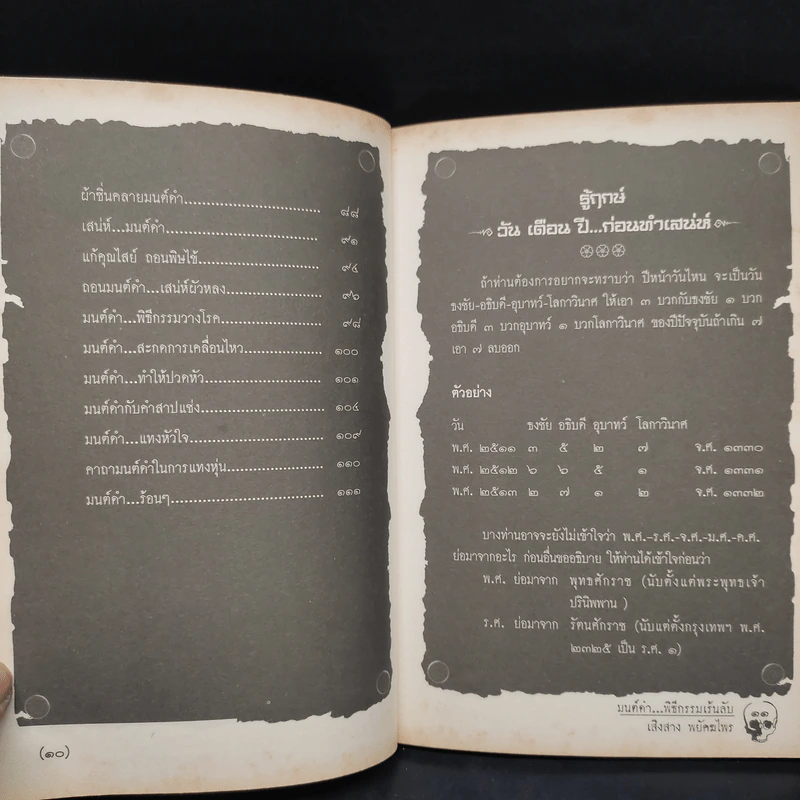 ผ้าซิ่นคลายมนต์ดำ........................................ ๘๘
เสน่ห์...มนต์ดำ........................................ ๙๑
แก้คุณไสย์ ถอนพิษไข้........................................ ๙๔
ถอนมนต์ดำ...เสน่ห์ผัวหลง........................................ ๙๖
มนต์ดำ...พิธีกรรมวางโรค........................................ ๙๘
มนต์ดำ...สะกดการเคลื่อนไหว........................................ ๑๐๐
มนต์ดำ...ทำให้ปวดหัว........................................ ๑๐๑
มนต์ดำกับคำสาปแช่ง........................................ ๑๐๔
มนต์ดำ...แทงหัวใจ........................................ ๑๐๙
คาถามนต์ดำในการแทงหุ่น........................................ ๑๑๐
มนต์ดำ...ร้อนๆ........................................ ๑๑๑
(๑๐)
รู้ฤกษ์
วัน เดือน ปี...ก่อนทำเสน่ห์
ถ้าท่านต้องการอยากจะทราบว่า ปีหน้าวันไหน จะเป็นวัน
ธงชัย-อธิบดี-อุบาทว์-โลกาวินาศ ให้เอา ๓ บวกกับธงชัย ๑ บวก
อธิบดี ๓ บวกอุบาทว์ ๑ บวกโลกาวินาศ ของปีปัจจุบันถ้าเกิน ๗
เอา ๗ ลบออก
ตัวอย่าง
วัน ธงชัย อธิบดี อุบาทว์ โลกาวินาศ
พ.ศ. ๒๕๑๑ ๓ ๕ ๒ ๗ จ.ศ. ๑๓๓๐
พ.ศ. ๒๕๑๒ ๖ ๖ ๕ ๑ จ.ศ. ๑๓๓๑
พ.ศ. ๒๕๑๓ ๒ ๗ ๑ ๒ จ.ศ. ๑๓๓๒
บางท่านอาจจะยังไม่เข้าใจว่า พ.ศ.-ร.ศ.-จ.ศ.-ม.ศ.-ค.ศ.
ย่อมาจากอะไร ก่อนอื่นขออธิบาย ให้ท่านได้เข้าใจก่อนว่า
พ.ศ. ย่อมาจาก พุทธศักราช (นับตั้งแต่พระพุทธเจ้า
ปรินิพพาน )
ร.ศ. ย่อมาจาก รัตนศักราช (นับแต่ตั้งกรุงเทพฯ พ.ศ.
๒๓๒๕ เป็น ร.ศ. ๑)
มนต์ดำ...พิธีกรรมเร้นลับ ๑๑
เสิงสาง พยัคฆไพร